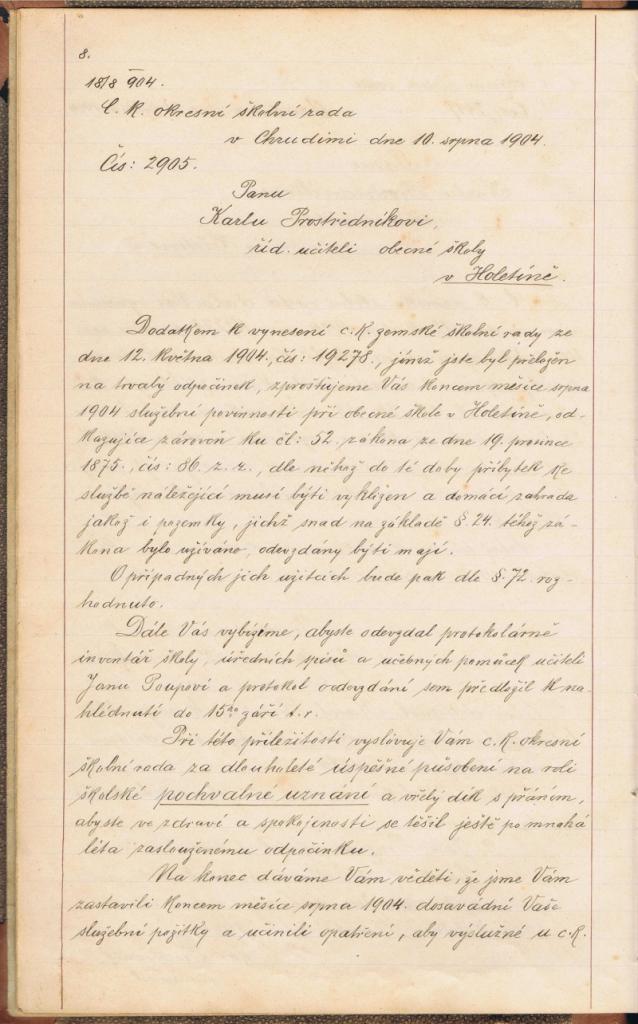 8.
18/8 904.
C. k. okresní školní rada
v Chrudimi dne 10. srpna 1904.
Čís: 2905.
Panu
Karlu Prostředníkovi,
říd. učiteli obecné školy
v Holetíně.
Dodatkem k vynesení c. k. zemské školní rady ze
dne 12. května 1904., čís: 19278., jímž jste byl přeložen
na trvalý odpočinek, zprošťujeme Vás koncem měsíce srpna
1904 služební povinnosti při obecné škole v Holetíně, od-
kazujíce zároveň ku čl: 52. zákona ze dne 19. prosince
1875., čís: 86. z. z., dle něhož do té doby příbytek ke
službě náležející musí býti vyklizen a domácí zahrada
jakož i pozemky, jichž snad na základě §. 24. téhož zá-
kona bylo užíváno, odevzdány býti mají.
O případných jich užitcích bude pak dle §. 72. roz-
hodnuto.
Dále Vás vybízíme, abyste odevzdal protokolárně
inventář školy, úředních spisů a učebných pomůcek učiteli
Janu Poupovi a protokol o odevzdání sem předložil k na-
hlédnutí do 15ho září t. r.
Při této příležitosti vyslovuje Vám c. k. okresní
školní rada za dlouholeté úspěšné působení na roli
školské pochvalné uznání a vřelý dík s přáním,
abyste ve zdraví a spokojenosti se těšil ještě po mnohá
léta zaslouženému odpočinku.
Na konec dáváme Vám věděti, že jsme Vám
zastavili koncem měsíce srpna 1904. dosavádní Vaše
služební požitky a učinili opatření, aby výslužné u c. k.